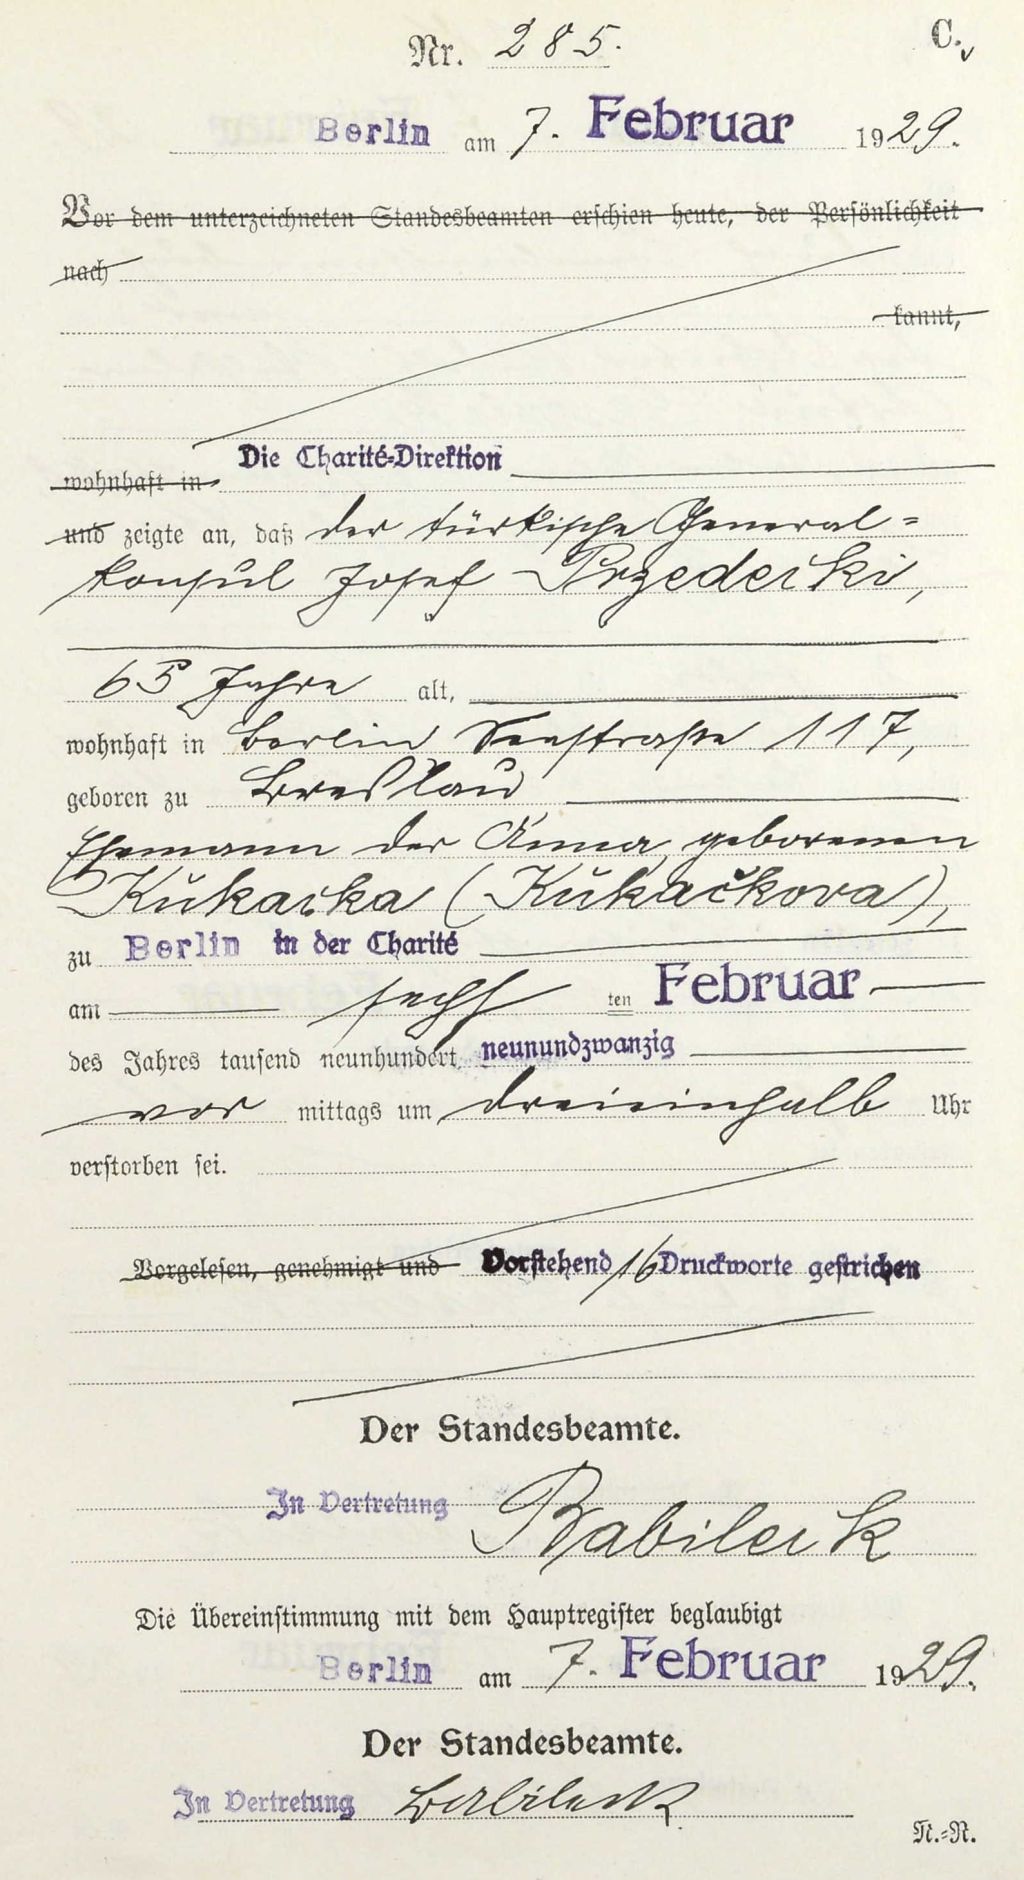 Nr. 285. C.
Berlin am 7. Februar 1929.
Vor dem unterzeichneten Standesbeamten erschien heute, der Persönlichkeit
nach
kannt,
Die Charité-Direktion
wohnhaft in
und zeigte an, daß der türkische General-
konsul Josef Przedecki,
65 Jahre alt,
wohnhaft in Berlin Seestraße 117,
geboren zu Breslau
Ehemann der Anna geborenen
Kukacka (Kukačkova),
zu Berlin in der Charité
am sechsten Februar
des Jahres tausend neunhundert neunundzwanzig
vormittags um dreieinhalb Uhr
verstorben sei.
Vorgelesen, genehmigt und Vorstehend 16 Druckworte gestrichen
Der Standesbeamte.
In Vertretung Babileck
Die Übereinstimmung mit dem Hauptregister beglaubigt
Berlin am 7. Februar 1929.
Der Standesbeamte.
In Vertretung Babileck
N.-R.